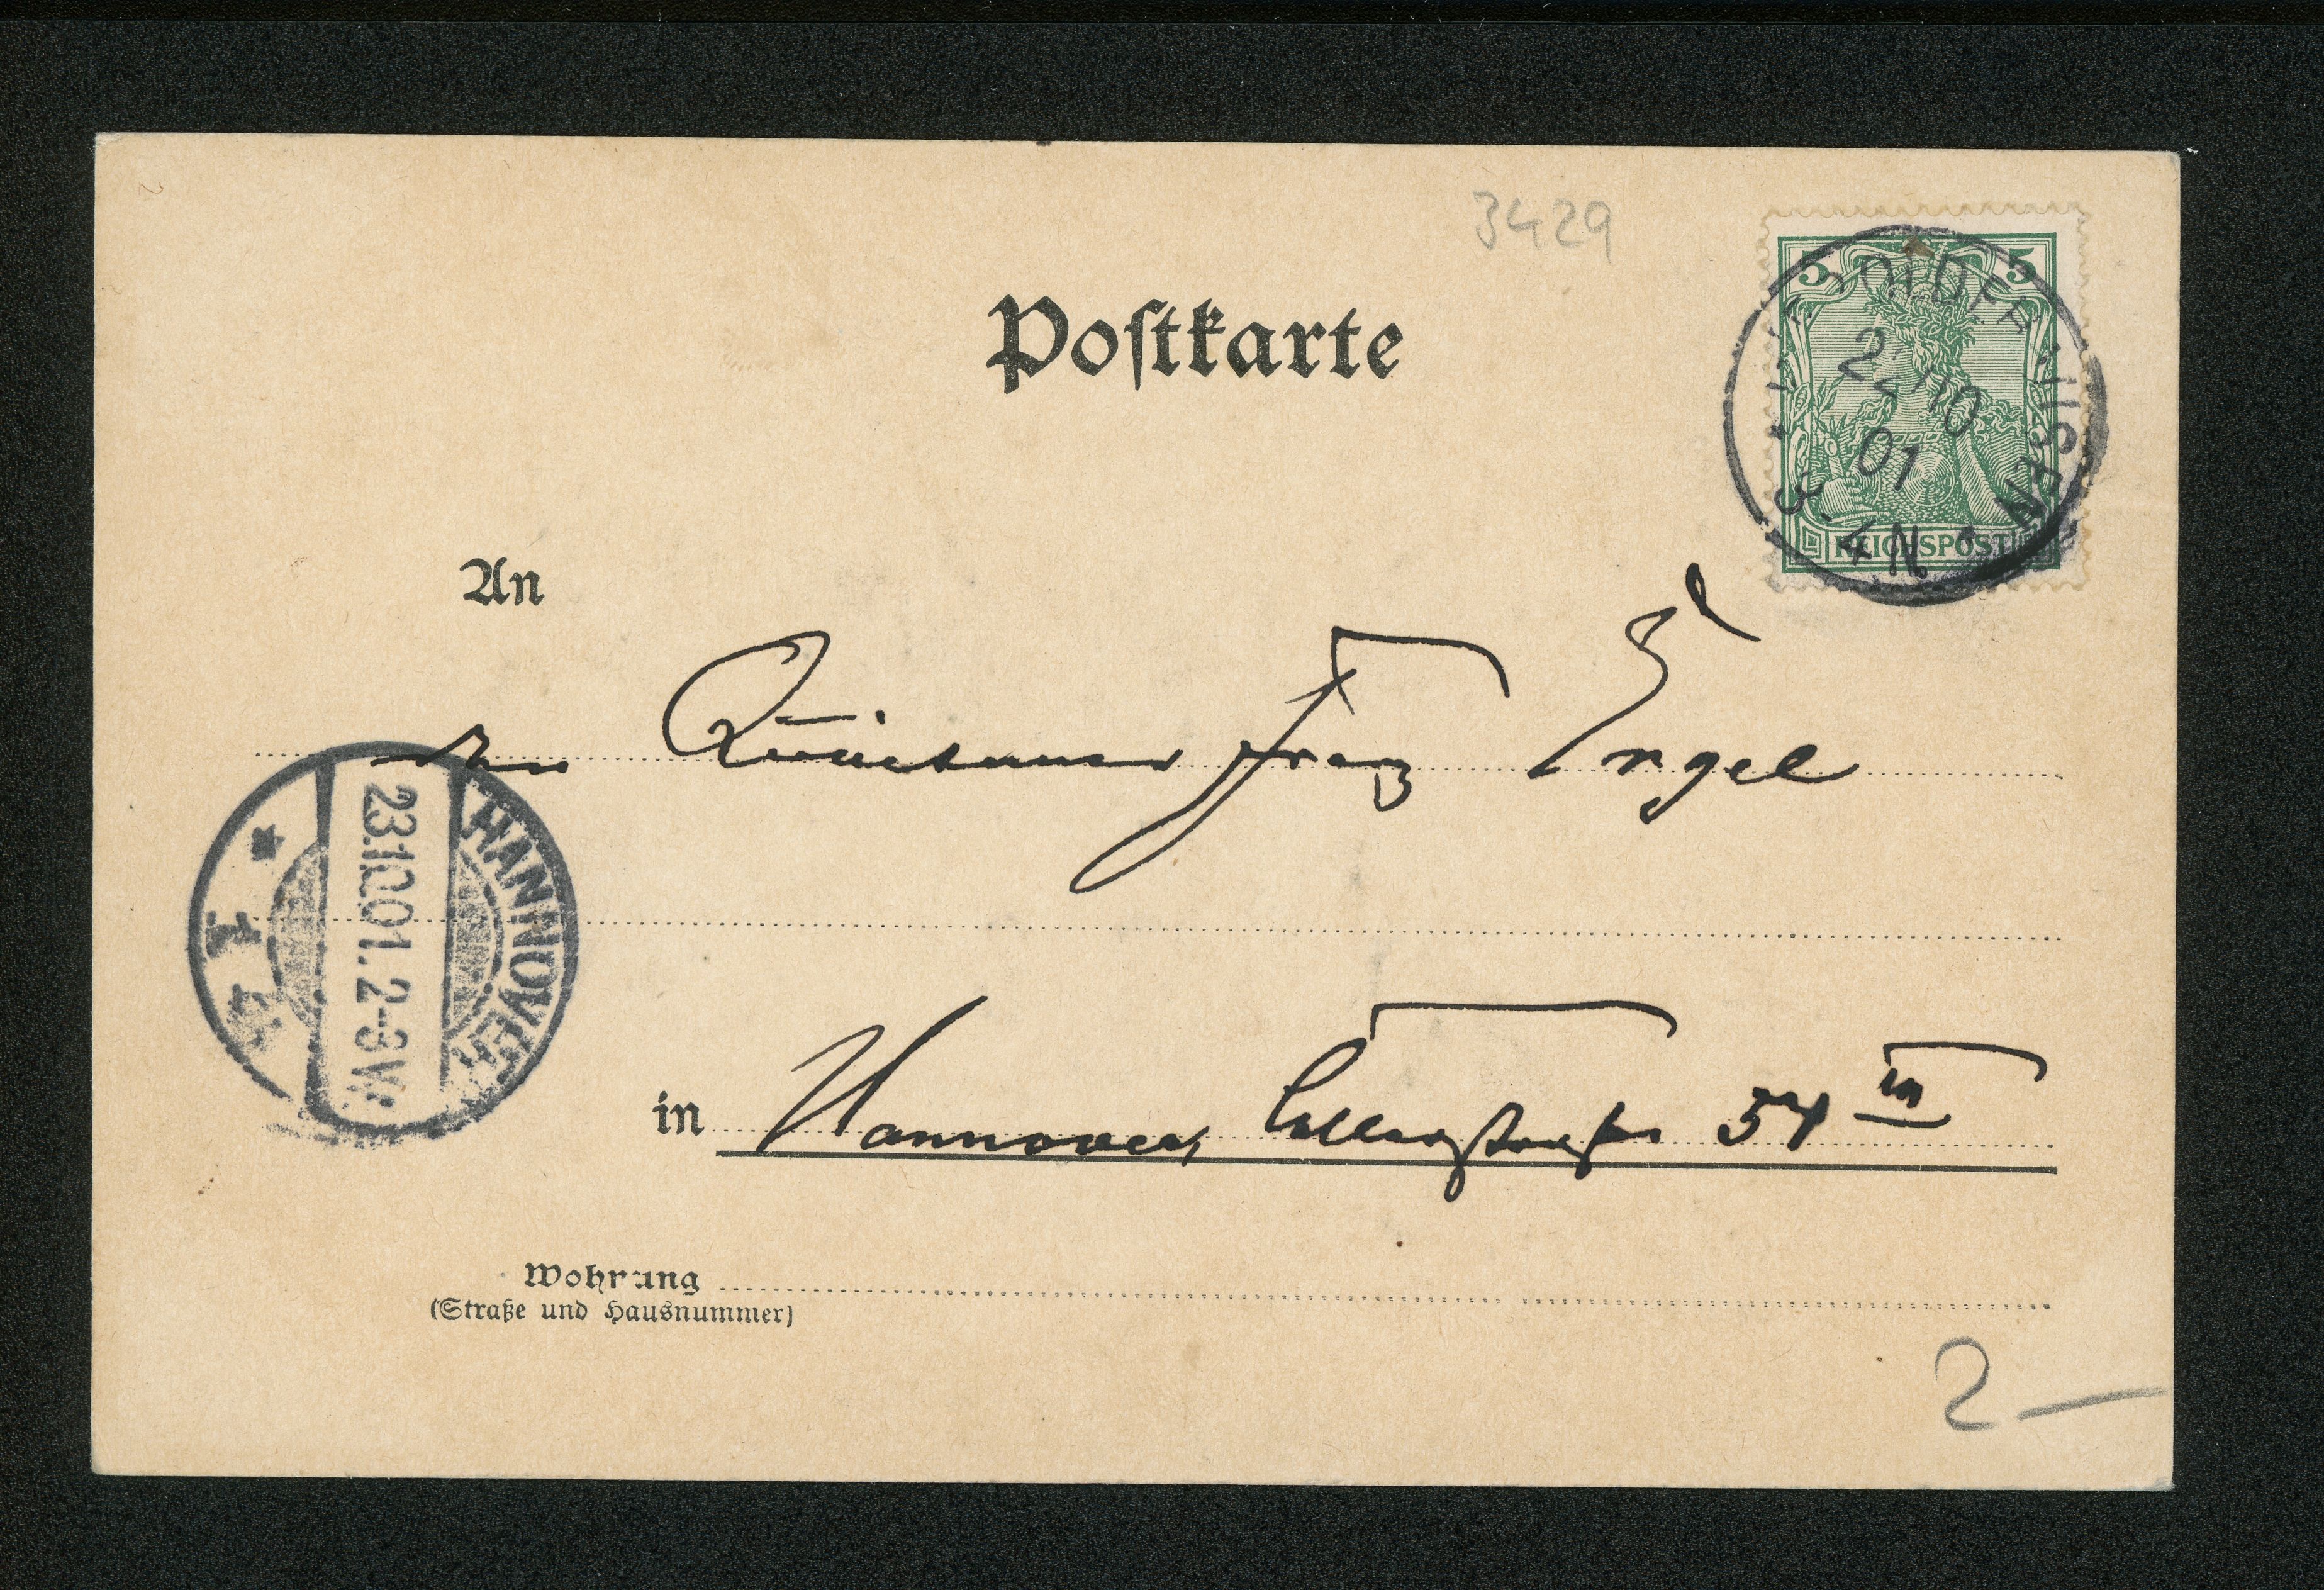 3429
5 5
22/10
01
3-4N
REICHSPOST
Postkarte
An
Franz Engel
HANNOVER
23.10.01. 2-3V.
* 1 *
in Hannover, 54 III
Wohnung
(Straße und Hausnummer)
2 –